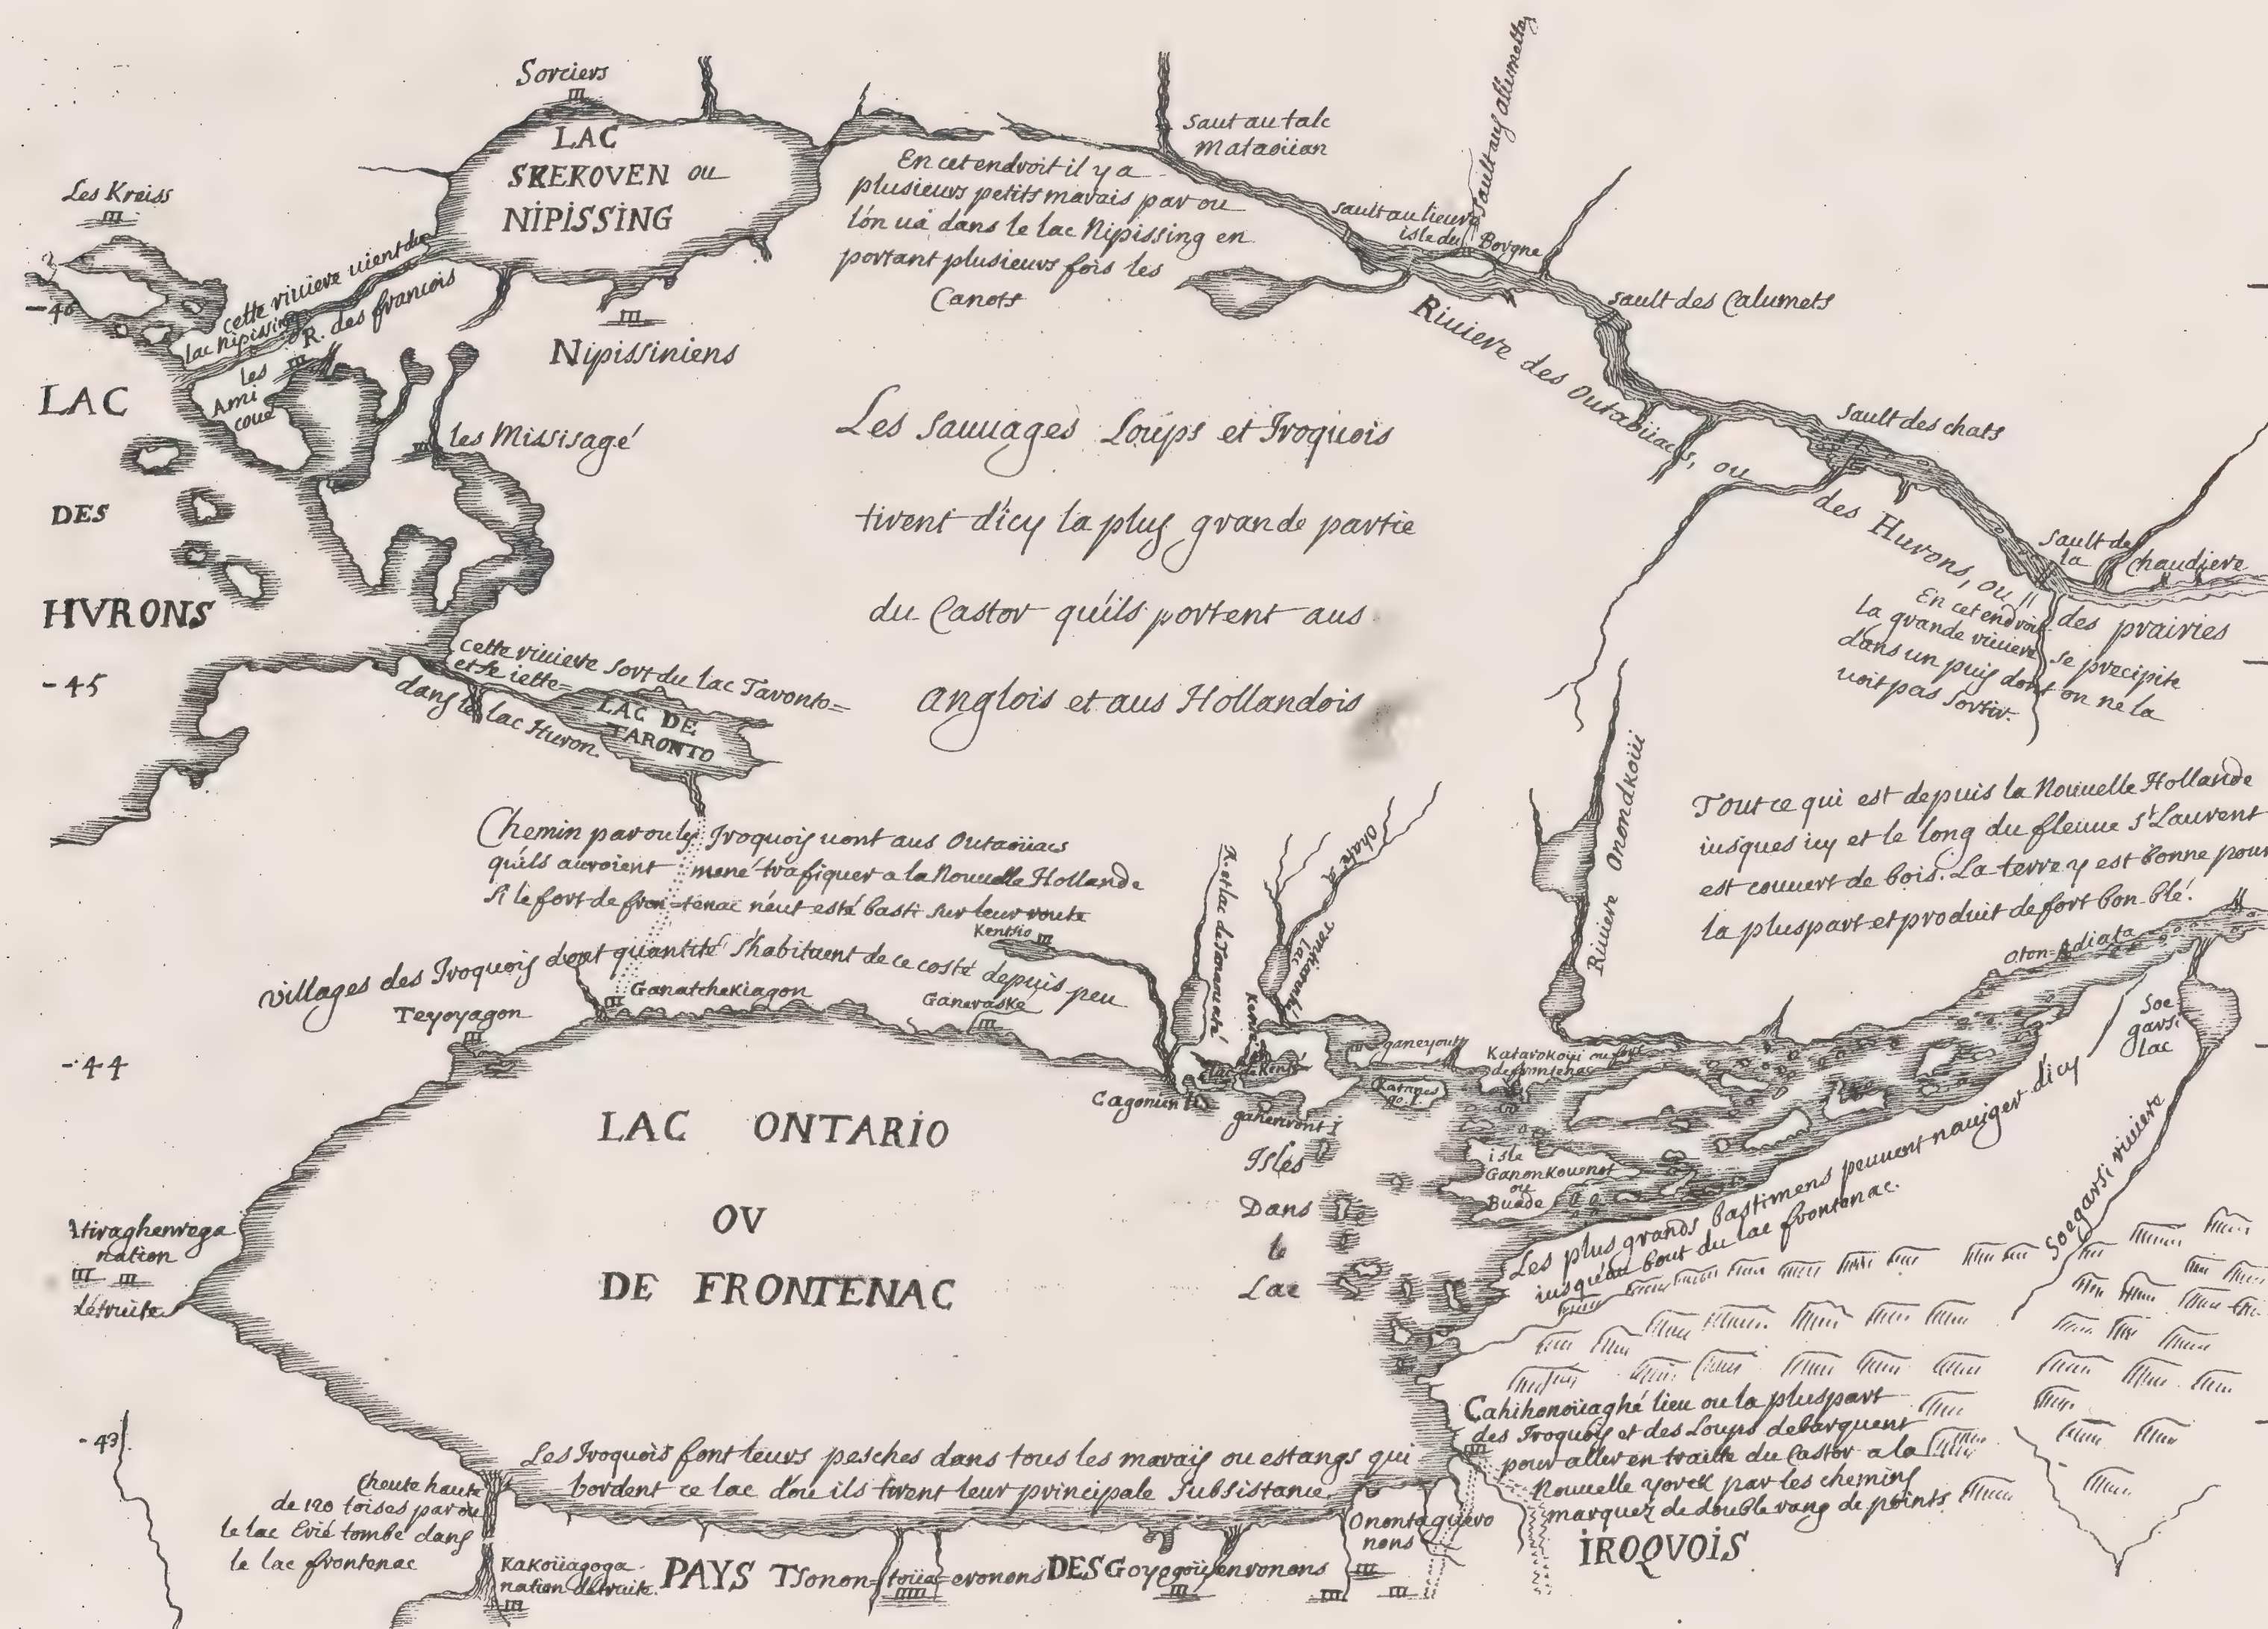 Sorciers
LAC
SKEKOVEN ou
NIPISSING
Les Kreiss
Saut au talc
Mataoüan
Sault aux alumettes
En cet endroit il y a
plusieurs petits marais par ou
l'on ua dans le lac Nipissing en
portant plusieurs fois les
Canots
sault au lieure
isle du Borgne
sault des Calumets
cette riuiere uient du
lac Nipissing
R. des francois
-46
Nipissiniens
les
Ami
coue
les Missisagé
LAC
DES
HVRONS
Riuiere des Outaoüacs, ou des Hurons, ou des prairies
sault des chats
sault de
la Chaudiere
En cet endroit
la grande riuiere se precipite
dans un puis dont on ne la
uoit pas sortir.
Les sauuages Loups et Iroquois
tirent d'icy la plus grande partie
du Castor qu'ils portent aus
anglois et aus Hollandois
-45
cette riuiere sort du lac Taronto=
et se iette=
dans le lac Huron.
LAC DE
TARONTO
Chemin par ou les Iroquois uont aus Outaoüacs
qu'ils auroient mené trafiquer a la Nouuelle Hollande
si le fort de fron=tenac n'eut esté basti sur leur route
villages des Iroquois dont quantité s'habituent de ce costé depuis peu
Kentsio
Ganatchekiagon
Ganeraske
Teyoyagon
Riuiere Onondkoüi
Tout ce qui est depuis la Nouuelle Hollande
iusques icy et le long du fleuue St Laurent
est couuert de bois. La terre y est bonne pour
la pluspart et produit de fort bon blé.
oton=Adiata
Soe
garsi
lac
Soegarsi riuiere
-44
ganeyout
Katarokoui ou fort
de frontenac
Lac de Kenté
Cagonun
ganeriront I
Isles
Dans
le
Lac
isle
Ganonkouenot
ou
Buade
Les plus grands bastimens peuuent nauiger d'icy
iusqu'au bout du lac frontenac.
LAC ONTARIO
OV
DE FRONTENAC
Atiraghenrega
nation
détruite
-43
cheute haute
de 120 toises par ou
le lac Erié tombe dans
le lac frontenac
Les Iroquois font leurs pesches dans tous les marais ou estangs qui
bordent ce lac d'ou ils tirent leur principale subsistance
Cahihonoüaghé lieu ou la pluspart
des Iroquois et des Loups debarquent
pour aller en traitte du Castor a la
Nouuelle Yorck par les chemins
marquez de double rang de points
Kakoüagoga
nation détruite.
PAYS DES IROQVOIS
Tsonontoüaeronons
Goyogoüenronons
Onontaguero
nons